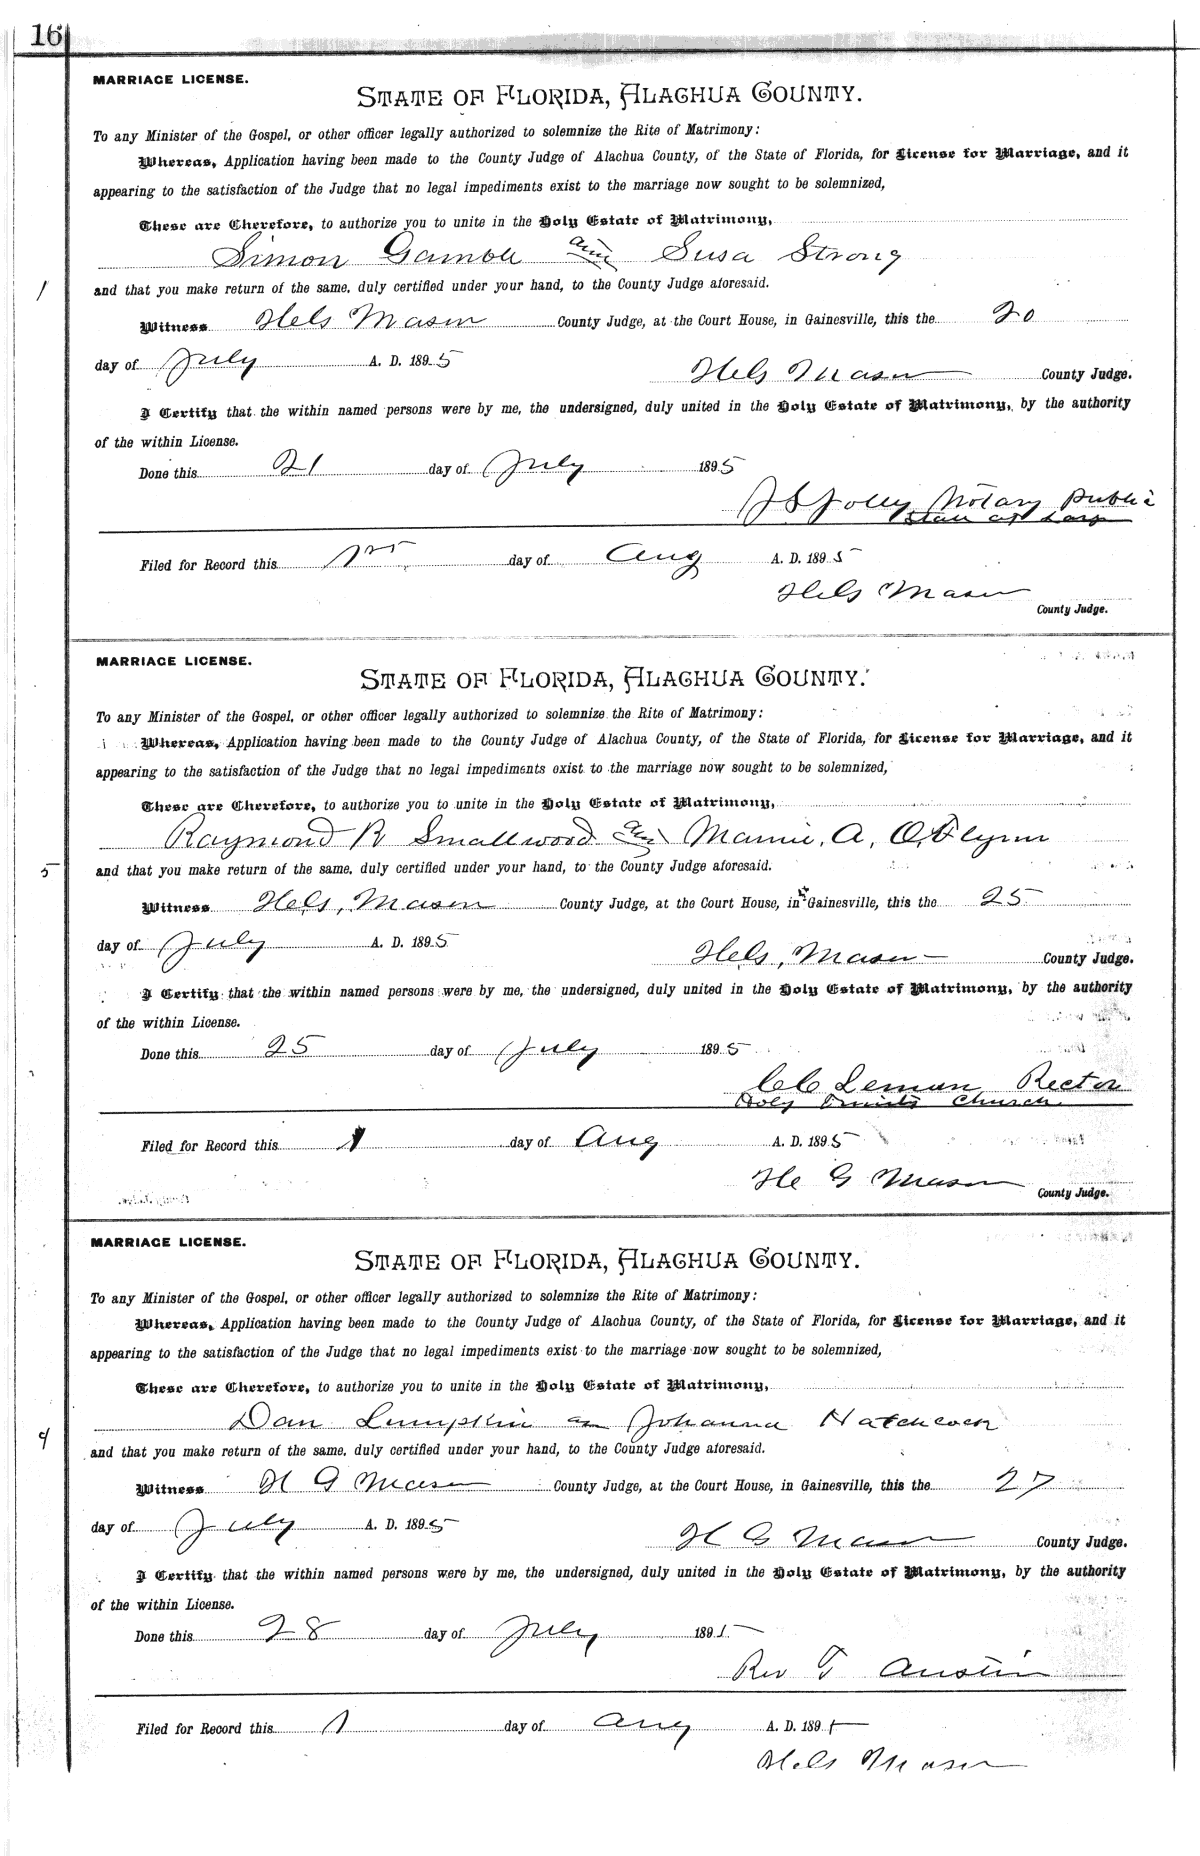 16
MARRIAGE LICENSE.
STATE OF FLORIDA, ALACHUA COUNTY.
To any Minister of the Gospel, or other officer legally authorized to solemnize the Rite of Matrimony:
Whereas, Application having been made to the County Judge of Alachua County, of the State of Florida, for License for Marriage, and it
appearing to the satisfaction of the Judge that no legal impediments exist to the marriage now sought to be solemnized,
These are Therefore, to authorize you to unite in the Holy Estate of Matrimony,
Simon Gamble and Susa Strong
and that you make return of the same, duly certified under your hand, to the County Judge aforesaid.
1
Witness H G Mason County Judge, at the Court House, in Gainesville, this the 20
day of July A. D. 1895
H G Mason County Judge.
I Certify that the within named persons were by me, the undersigned, duly united in the Holy Estate of Matrimony, by the authority
of the within License.
Done this 21 day of July 1895
J S Jolly Notary Public
State at Large
Filed for Record this 1st day of Aug A. D. 1895
H G Mason
County Judge.
MARRIAGE LICENSE.
STATE OF FLORIDA, ALACHUA COUNTY.
To any Minister of the Gospel, or other officer legally authorized to solemnize the Rite of Matrimony:
Whereas, Application having been made to the County Judge of Alachua County, of the State of Florida, for License for Marriage, and it
appearing to the satisfaction of the Judge that no legal impediments exist to the marriage now sought to be solemnized,
These are Therefore, to authorize you to unite in the Holy Estate of Matrimony,
Raymond R Smallwood and Mamie, A, O,Flynn
5
and that you make return of the same, duly certified under your hand, to the County Judge aforesaid.
Witness H G, Mason County Judge, at the Court House, in Gainesville, this the 25
day of July A. D. 1895
H G, Mason County Judge.
I Certify that the within named persons were by me, the undersigned, duly united in the Holy Estate of Matrimony, by the authority
of the within License.
Done this 25 day of July 1895
Rector
Holy Trinity Church.
Filed for Record this 1 day of Aug A. D. 1895
H G Mason
County Judge.
MARRIAGE LICENSE.
STATE OF FLORIDA, ALACHUA COUNTY.
To any Minister of the Gospel, or other officer legally authorized to solemnize the Rite of Matrimony:
Whereas, Application having been made to the County Judge of Alachua County, of the State of Florida, for License for Marriage, and it
appearing to the satisfaction of the Judge that no legal impediments exist to the marriage now sought to be solemnized,
These are Therefore, to authorize you to unite in the Holy Estate of Matrimony,
Dan Lumpkin an Johanna Hatchcock
and that you make return of the same, duly certified under your hand, to the County Judge aforesaid.
Witness H G Mason County Judge, at the Court House, in Gainesville, this the 27
day of July A. D. 1895
H G Mason County Judge.
I Certify that the within named persons were by me, the undersigned, duly united in the Holy Estate of Matrimony, by the authority
of the within License.
Done this 28 day of July 1895
Rev T Austin
Filed for Record this 1 day of Aug A. D. 1895
H G Mason